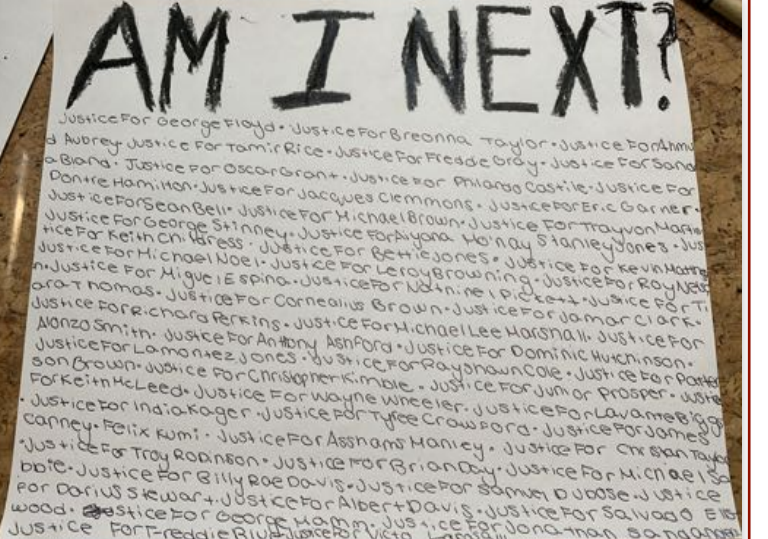 AM I NEXT?
Justice For George Floyd. Justice For Breonna Taylor. Justice For Ahmu
d Aubrey. Justice For Tamir Rice. Justice For Fredde Gray. Justice For Sand
a Bland. Justice For Oscar Grant. Justice For Philando Castile. Justice For
Dontre Hamilton. Justice For Jacques Clemmons. Justice For Eric Garner.
Justice For Sean Bell. Justice For Michael Brown. Justice For Trayvon Martin
Justice For George Stinney. Justice For Aiyana Mo'nay Stanley Jones. Jus
tice For Keith Childress. Justice For Bettie Jones. Justice For Kevin Matthe
Justice For Michael Noel. Justice For Leroy Browning. Justice For Roy Nels
n. Justice For Miguel Espina. Justice For Nathniel Pickett. Justice For Ti
ara Thomas. Justice For Cornealius Brown. Justice For Jamar Clark.
Justice For Richard Perkins. Justice For Michael Lee Marshall. Justice For
Alonzo Smith. Justice For Anthony Ashford. Justice For Dominic Hutchinson.
Justice For Lamontez Jones. Justice For Rayshawn Cole. Justice For Patter
son Brown. Justice For Christopher Kimble. Justice For Junior Prosper. Justice
For Keith McLeed. Justice For Wayne Wheeler. Justice For Lavante Biggs
. Justice For India Kager. Justice For Tyree Crawford. Justice For James
Carney. Felix Kumi. Justice For Asshams Manley. Justice For Christian Taylor
. Justice For Troy Robinson. Justice For Brian Day. Justice For Michael Sa
bbie. Justice For Billy Rae Davis. Justice For Samuel Dubose. Justice
For Darius Stewart. Justice For Albert Davis. Justice For Salvado Ells
wood. Justice For George Mann. Justice For Jonathan
Justice For Freddie Blue. Justice For Victo